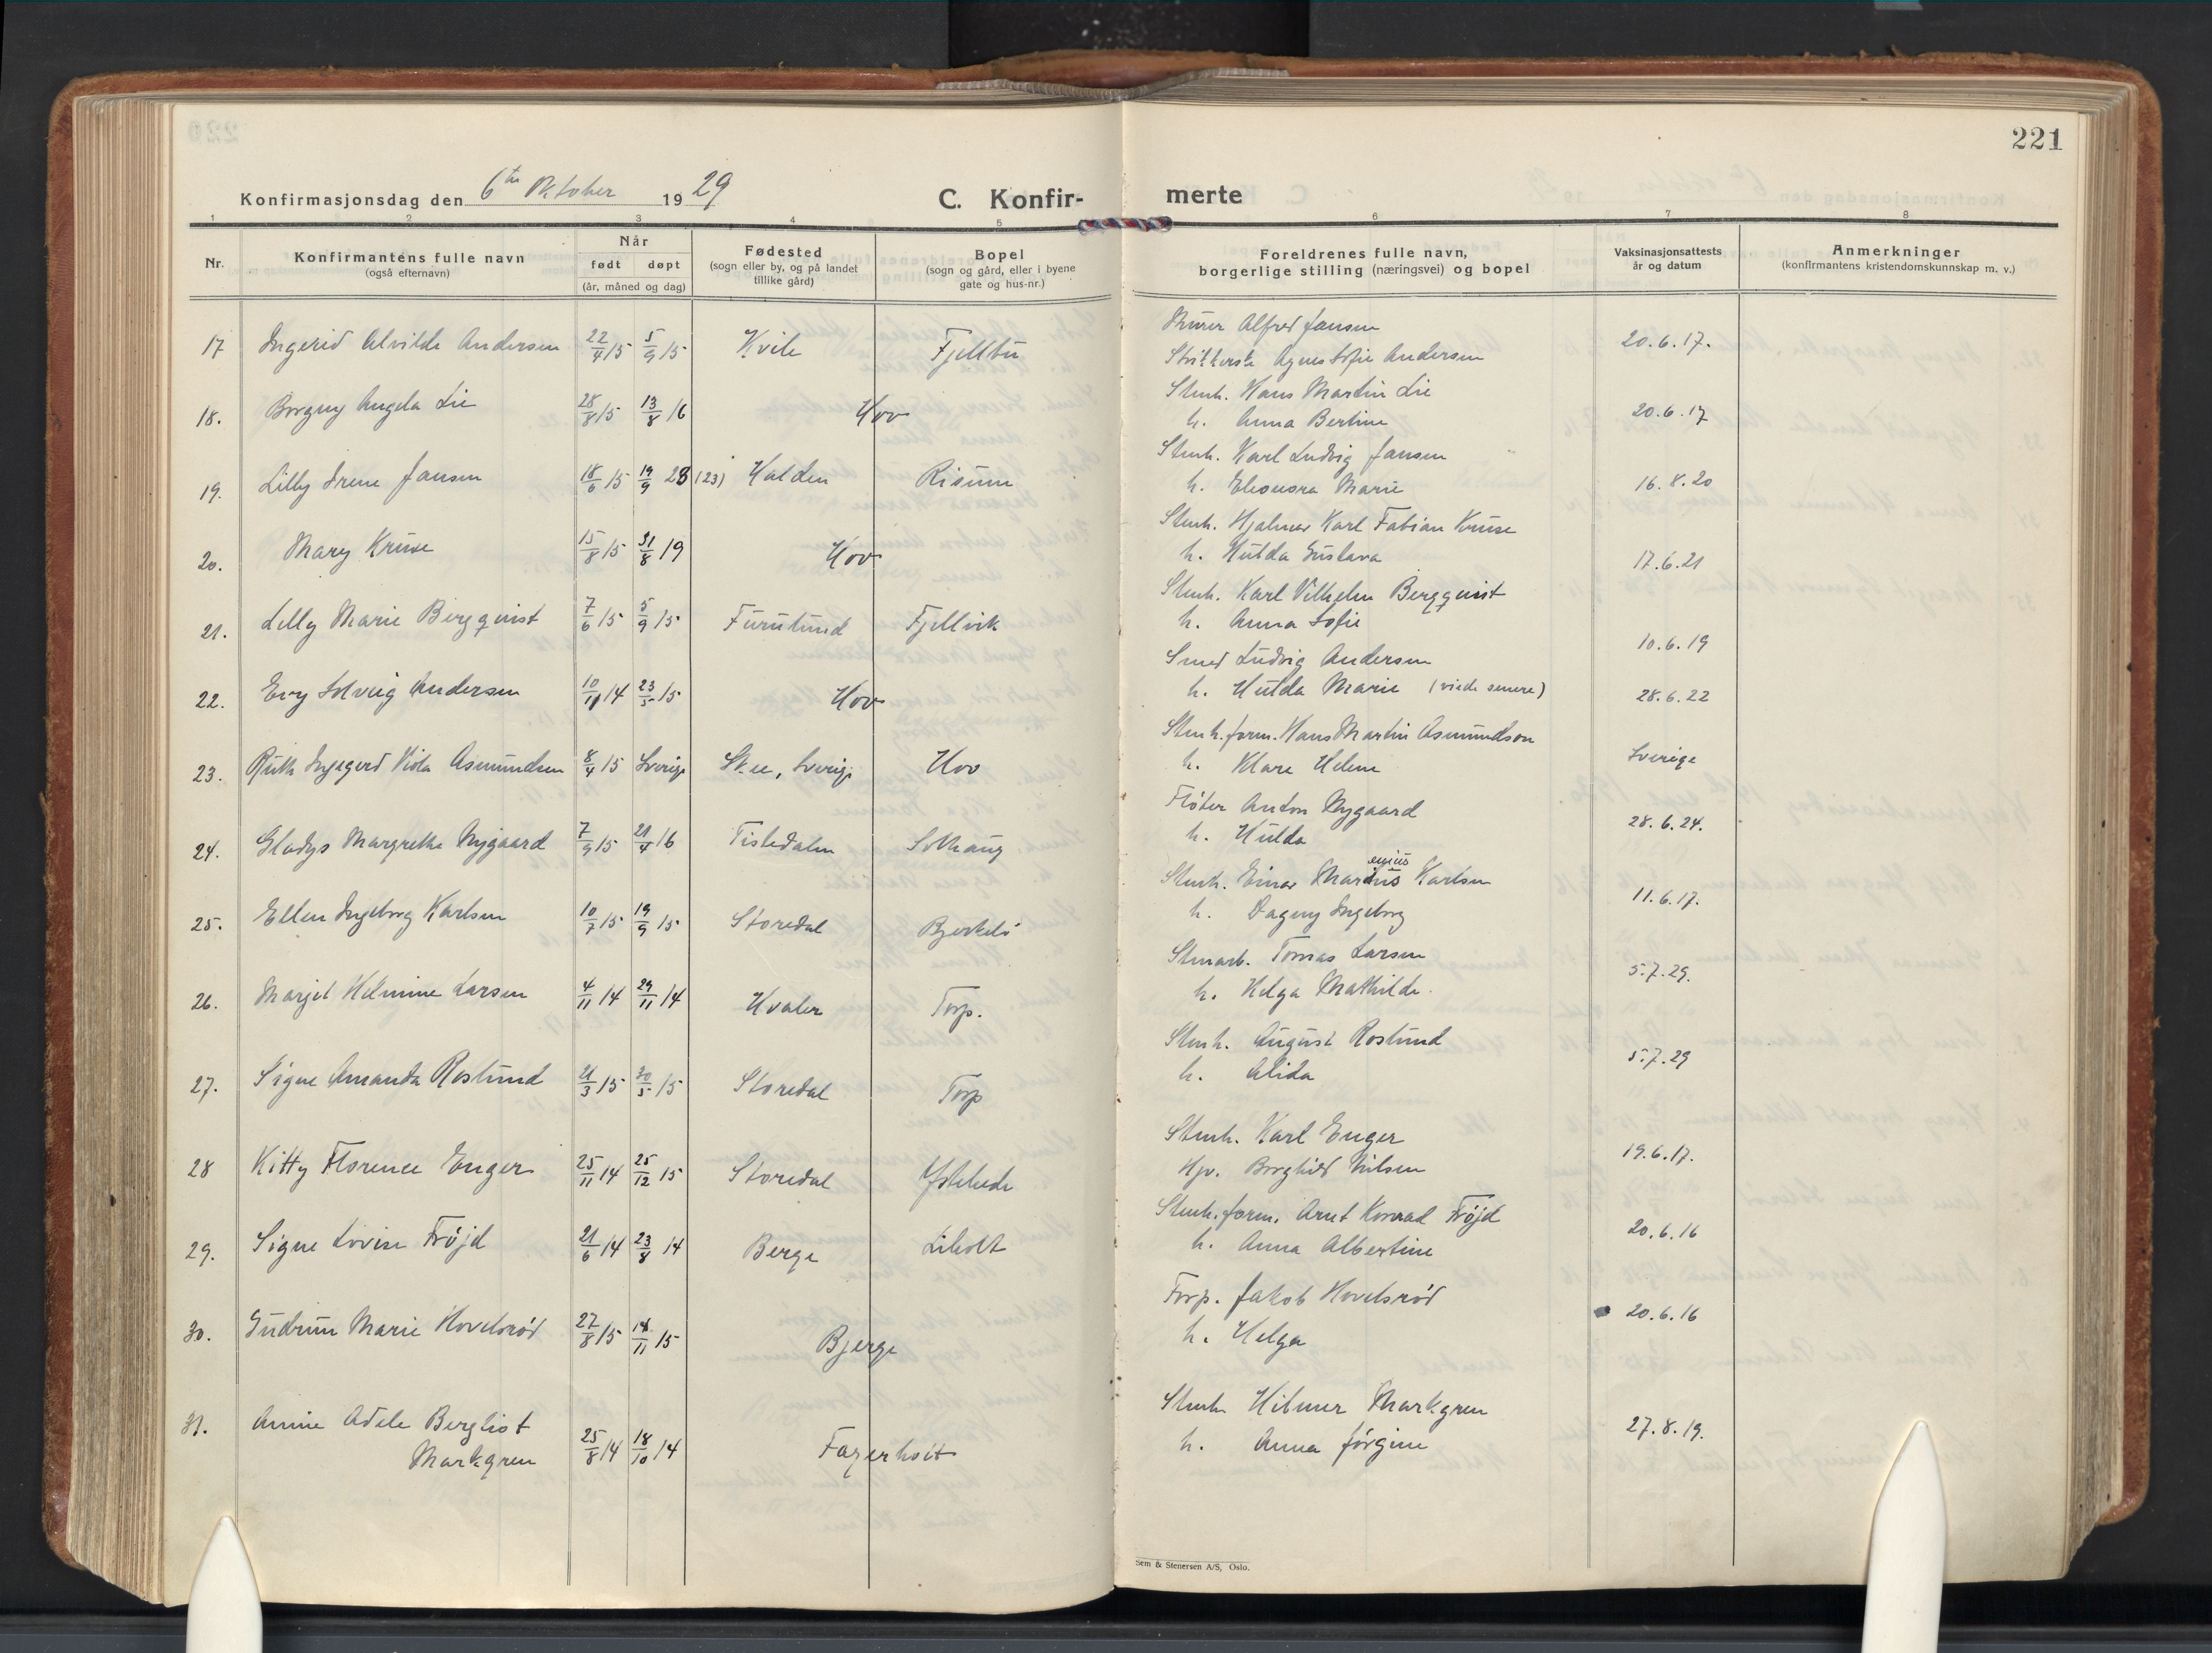 221
Konfirmasjonsdag den 6te Oktober 1929
C. Konfir-
merte
1 2 3 4 5 6 7 8
Nr.
Konfirmantens fulle navn
(også efternavn)
Når
født døpt
(år, måned og dag)
Fødested
(sogn eller by, og på landet
tillike gård)
Bopel
(sogn og gård, eller i byene
gate og hus-nr.)
Foreldrenes fulle navn,
borgerlige stilling (næringsvei) og bopel
Vaksinasjonsattests
år og datum
Anmerkninger
(konfirmantens kristendomskunnskap m. v.)
Murer Alfred Jansen
17 Ingerid Alvilde Andersen 22/4 15 5/9 15 Kvile Fjelltu 20.6.17.
Agnes Sofie Andersen
Stenh. Hans Martin Lie
18. Borgny Angela Lie 28/8 15 13/8 16 Hov 20.6.17
h. Anna Bertine
Stenh. Karl Ludvig Jansen
19. Lilly Irene Jansen 18/6 15 19/9 23 (23) Halden Risum 16.8.20
h. Eleonora Marie
Stenh. Hjalmar Karl Fabian Kruse
20. Mary Kruse 15/8 15 31/8 19 Hov 17.6.21
h. Hulda Gustava
Stenh. Karl Vilhelm Bergquist
21. Lilly Marie Bergquist 7/6 15 5/9 15 Furulund Fjellvik 10.6.19
h. Anna Sofie
Smed Ludvig Andersen
22. Evy Solveig Andersen 10/11 14 23/5 15 Hov 28.6.22
h. Hulda Marie (viede senere)
Stenh. form. Hans Martin Asmundson
23. Ruth Ingegerd Viola Asmundsen 8/4 15 Sverige Skee, Sverige Hov Sverige
h. Klara Helene
Fløter Anton Nygaard
24. Gladys Margrethe Nygaard 7/9 15 21/4 16 Tistedalen Solhaug 28.6.24.
h. Hulda
Stenh. Einar Marenius Karlsen
25. Ellen Ingeborg Karlsen 10/7 15 19/9 15 Storedal Bjerkeli 11.6.17.
h. Dagny Ingeborg
Stenarb. Tomas Larsen
26. Marjet Helmine Larsen 4/11 14 29/11 14 Hvaler Torp. 5.7.29.
h. Helga Mathilde.
Stenh. August Roslund
27. Signe Amanda Roslund 21/3 15 30/5 15 Storedal Torp 5.7.29
h. Alida
Stenh. Karl Enger
28 Kitty Florence Enger 25/11 14 25/12 15 Storedal 19.6.17.
Hjv. Borghild Nilsen
Stenh. form. Arnt Konrad Frøjd
29. Signe Lovise Frøjd 21/6 14 23/8 14 Berge Liholt 20.6.16
h. Anna Albertine
Forp. Jakob Hovelsrød
30. Gudrun Marie Hovelsrød 27/8 15 14/11 15 Bjerge 20.6.16
h. Helga
Stenh. Hilmer Markgren
31. Annie Adele Bergliot
Markgren 25/8 14 18/10 14 Fagerholt 27.8.19.
h. Anna Jørgine
Sem & Stenersen A/S, Oslo.